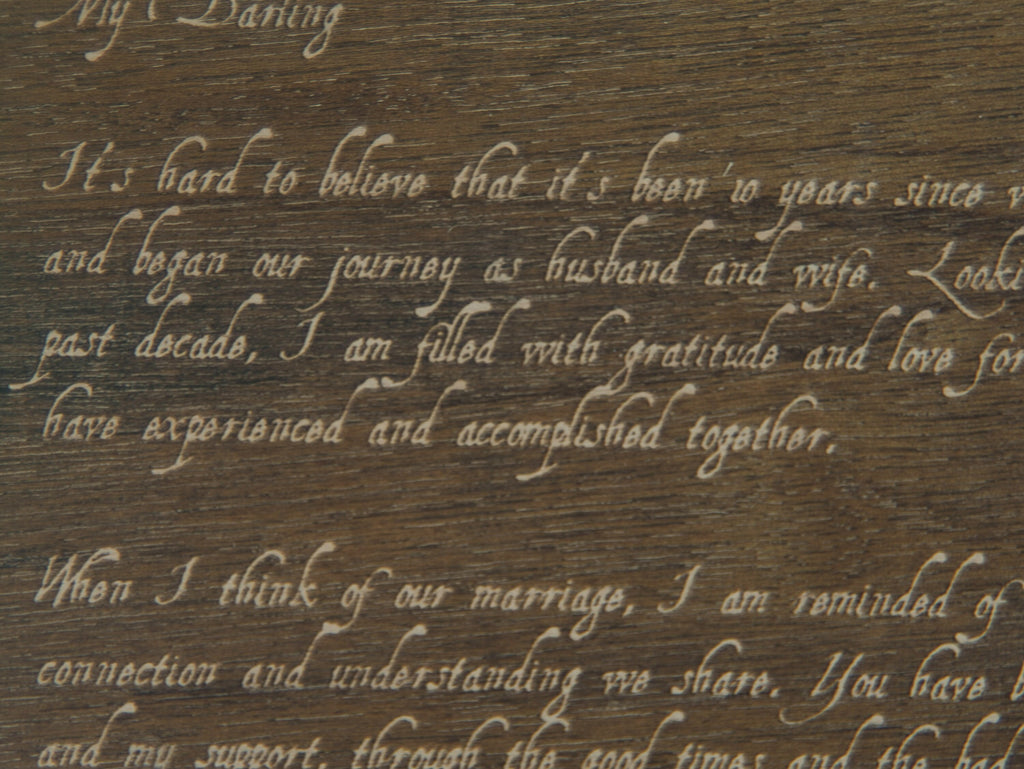 My Darling
It's hard to believe that it's been 10 years since
and began our journey as husband and wife.
past decade, I am filled with gratitude and love for
have experienced and accomplished together.
When I think of our marriage, I am reminded of
connection and understanding we share. You have
and my support, through the good times and the bad